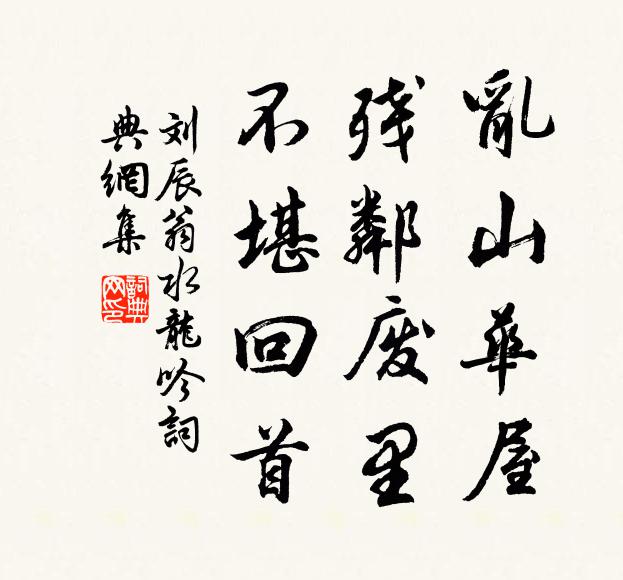 亂山華屋
殘鄰廢里
不堪回首
刘辰翁水龍吟詞
典網集
詞典網印